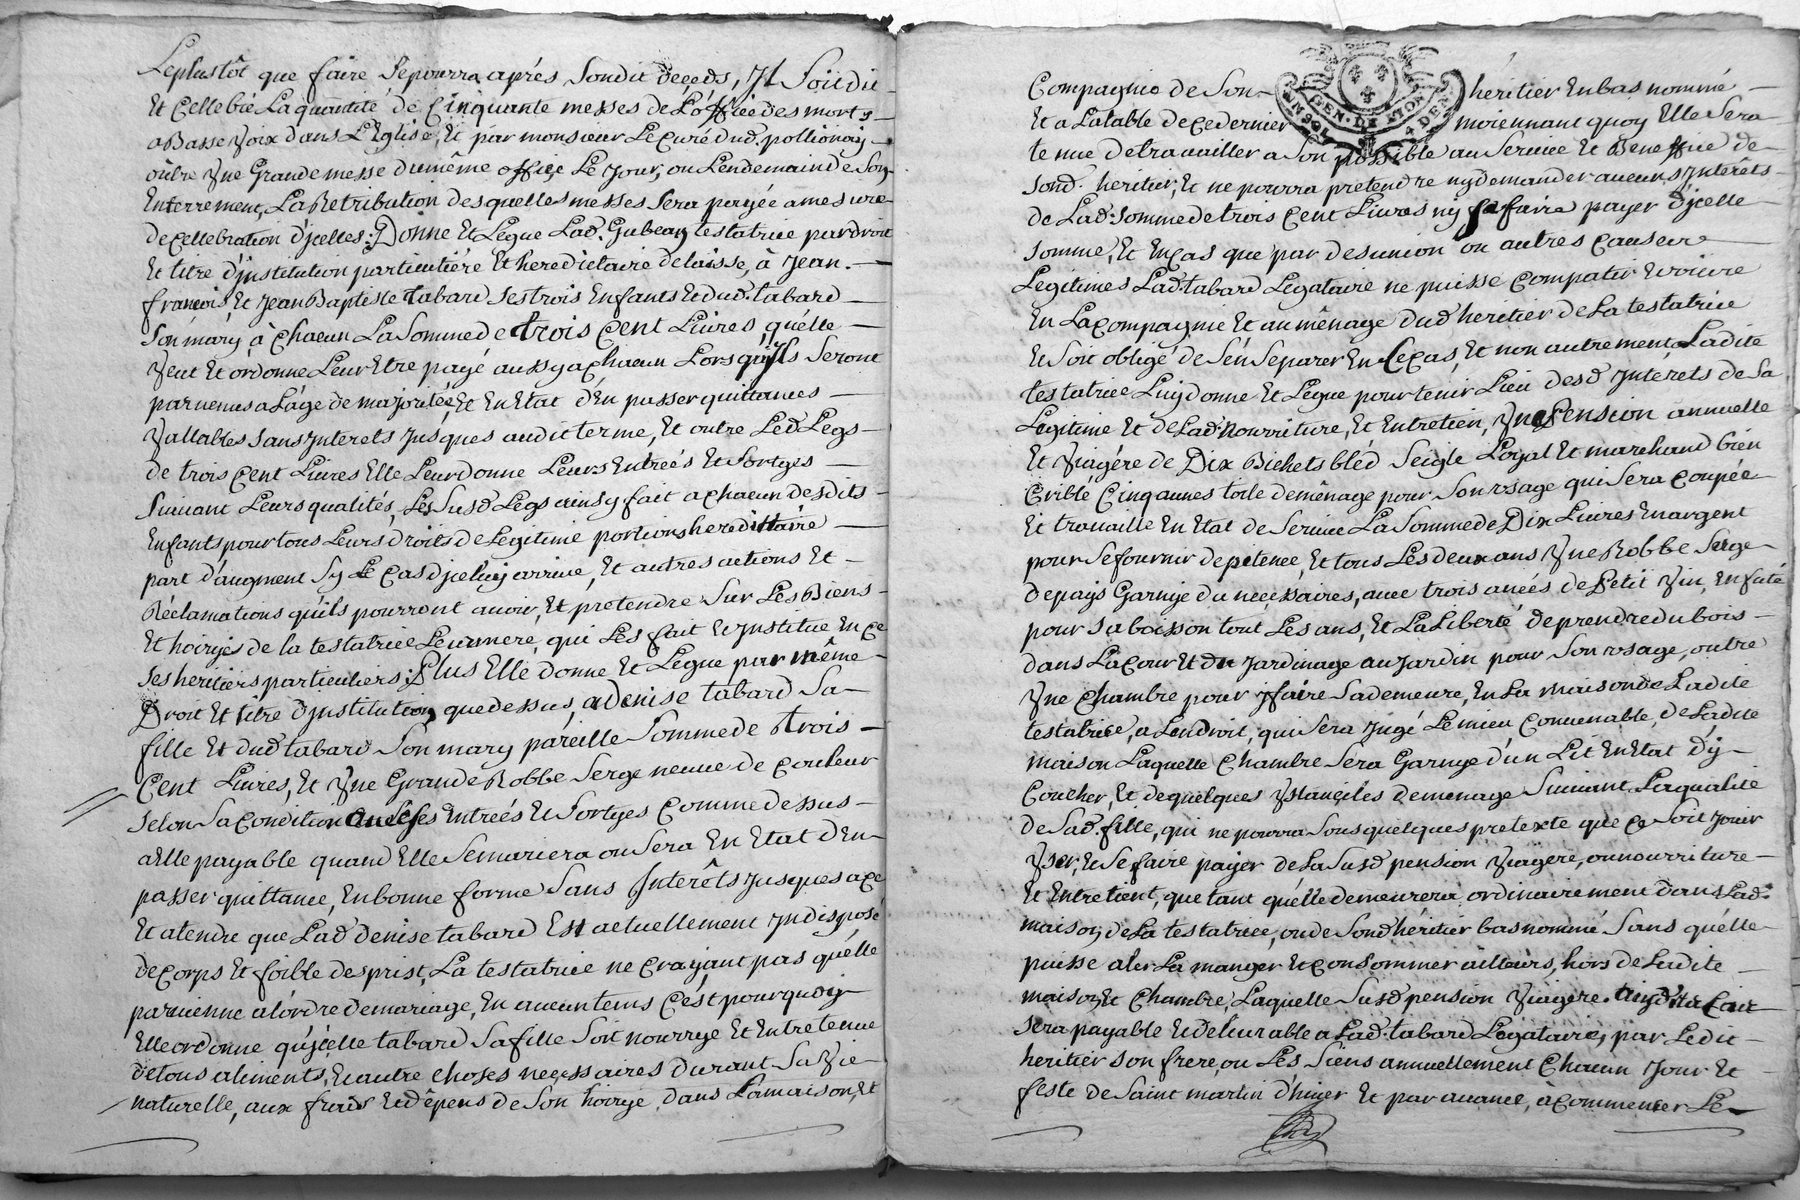 Leplustôt que faire Sepourra aprés Sondit deçeds, Jl Soit dit
Et Cellebré La quantité de Cinquante messes de L'offiçe des morts
a Basse Voix dans L'Eglise, Et par monsieur Le Curé dud. pollionay
oûtre Vne Grande messe dumême offiçe Le Jour, ou Lendemain de Son
Enterrement, La Retribution des quelles messes Sera payée amesure
de Cellebration d'jcelles; Donne Et Legue Lad. Gubean testatrice par droit
Et titre d'jnstitution particutiére Et heredictaire delaisse, à Jean.
francois, Et Jean Baptiste tabard Ses trois Enfants Et dud. tabard
Son mary, à Chacun La Somme de trois Cent Livres, qu'elle
Veut Et ordonne Leur Etre payé aussy a Chacun Lorsqu'jls Seront
parvenus a L'âge de majorité, Et En Etat d'En passer quittances
Vallables Sans Jnterets Jusques audit terme, Et outre Led. Legs
de trois Cent Livres Elle Leur donne Leurs Entreés Et Sortyes
Suivant Leurs qualités, Les Susd. Legs ainsy fait a Chacun desdits
Enfants pour tous Leurs droits de Legitime portions heredittaire
part d'augment Sy Le Cas d'jceluy arrive, Et autres actions Et
Réclamations qu'ils pourront avoir, Et pretendre Sur Les Biens
Et hoiryes de la testatrice Leur mere, qui Les fait Et Jnstitue En Ce
Ses heritiers particuliers; Plus Elle donne Et Legue par même
Droit Et titre d'jnstitution que dessus, a denise tabard Sa
fille Et dud. tabard Son mary pareille Somme de trois
Cent Livres, Et Vne Grande Robbe Serge neuve de Couleur
Selon Sa Condition avec Ses Entreés Et Sortyes Comme dessus
a Elle payable quand Elle Semariera ou Sera En Etat d'En
passer quittance, En bonne forme Sans Jnterêts Jusques a Ce
Et atendu que Lad. denise tabard Est actuellement Jndisposé
de Corps Et foible desprist, La testatrice ne Crayant pas qu'elle
parvienne a L'ordre de mariage, En aucun tems C'est pourquoy
Elle ordonne qu'jcelle tabard Sa fille Soit nourrye Et Entretenue
de tous aliments, Et autre Choses neçessaires durant Sa Vie
naturelle, aux frais Et dêpens de Son hoirye dans La maison, Et
Compagnie de Son heritier En bas nommé
Et a La table de Ce dernier moiennant quoy Elle Sera
tenue de travailler a Son possible au Service Et Beneffice de
Sond. heritier, Et ne pourra pretendre ny demander aucuns Jnterêts
de Lad. Somme de trois Cent Livres ny Se faire payer d'jcelle
Somme, Et En Cas que par desunion ou autres Causes
Legitimes Lad. tabard Legataire ne puisse Compatir Et vivre
En La Compagnie Et au mênage dud. heritier de La testatrice
Et Soit obligé de S'en Separer En Ce Cas, Et non autrement, Ladite
testatrice Luy donne Et Legue pour tenir Lieu desd. Jnterêts de Sa
Legitime Et de Lad. Nourriture, Et Entretien, Vne Pension annuelle
Et Viagére de Dix Bichets bléd Seigle Loyal Et marchand bien
Criblé Cinq aunes toile de mênage pour Son vsage qui Sera Coupée
Et travaillé En Etat de Service La Somme de Dix Livres En argent
pour Se fournir de pitence, Et tous Les deux ans Vne Robbe Serge
de pays Garnye du neçessaires, avec trois anées de Petit Vin, En futé
pour Sa boisson tout Les ans, Et La Liberté de prendre du bois
dans La Cour Et du Jardinage au Jardin pour Son vsage, outre
Vne Chambre pour y faire Sa demeure, En La maison de Ladite
testatrice, a L'endroit, qui Sera Jugé Le mieu Convenable, de Ladite
maison Laquelle Chambre Sera Garnye d'un Lit En Etat d'y
Coucher, Et de quelques Vstançiles de menage Suivant La qualité
de Sad. fille, qui ne pourra Sous quelques pretexte que Ce Soit Jouir
Vser, Et Se faire payer de La Susd. pension Viagere, ou nourriture
Et Entretient, que tant qu'elle demeurera ordinairement dans Lad.
maison de La testatrice, ou de Sond. héritier bas nommé Sans qu'elle
puisse aler La manger Et Consommer ailleurs, hors de Ladite
maison, Et Chambre, Laquelle Susd. pension Viagere
Sera payable Et delivrable a Lad. tabard Legataire, par Ledit
heritier Son frere, ou Les Siens annuellement Chacun Jour Et
feste de Saint martin d'hiver Et par avance, à Commencer Le
GEN. DE LYON
4 DEN